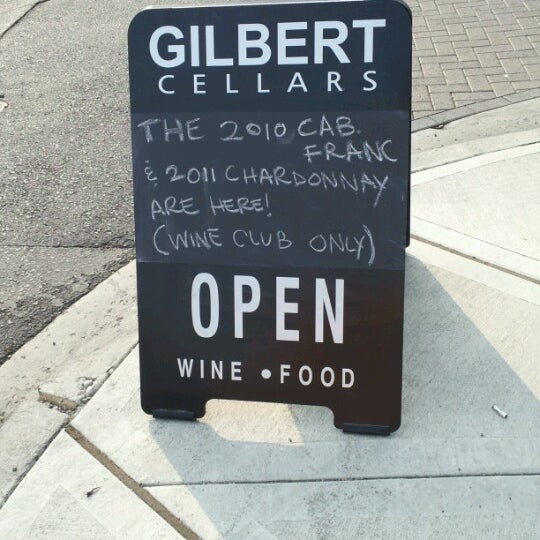 GILBERT
CELLARS
THE 2010 CAB.
FRANC
& 2011 CHARDONNAY
ARE HERE!
(WINE CLUB ONLY)
OPEN
WINE • FOOD